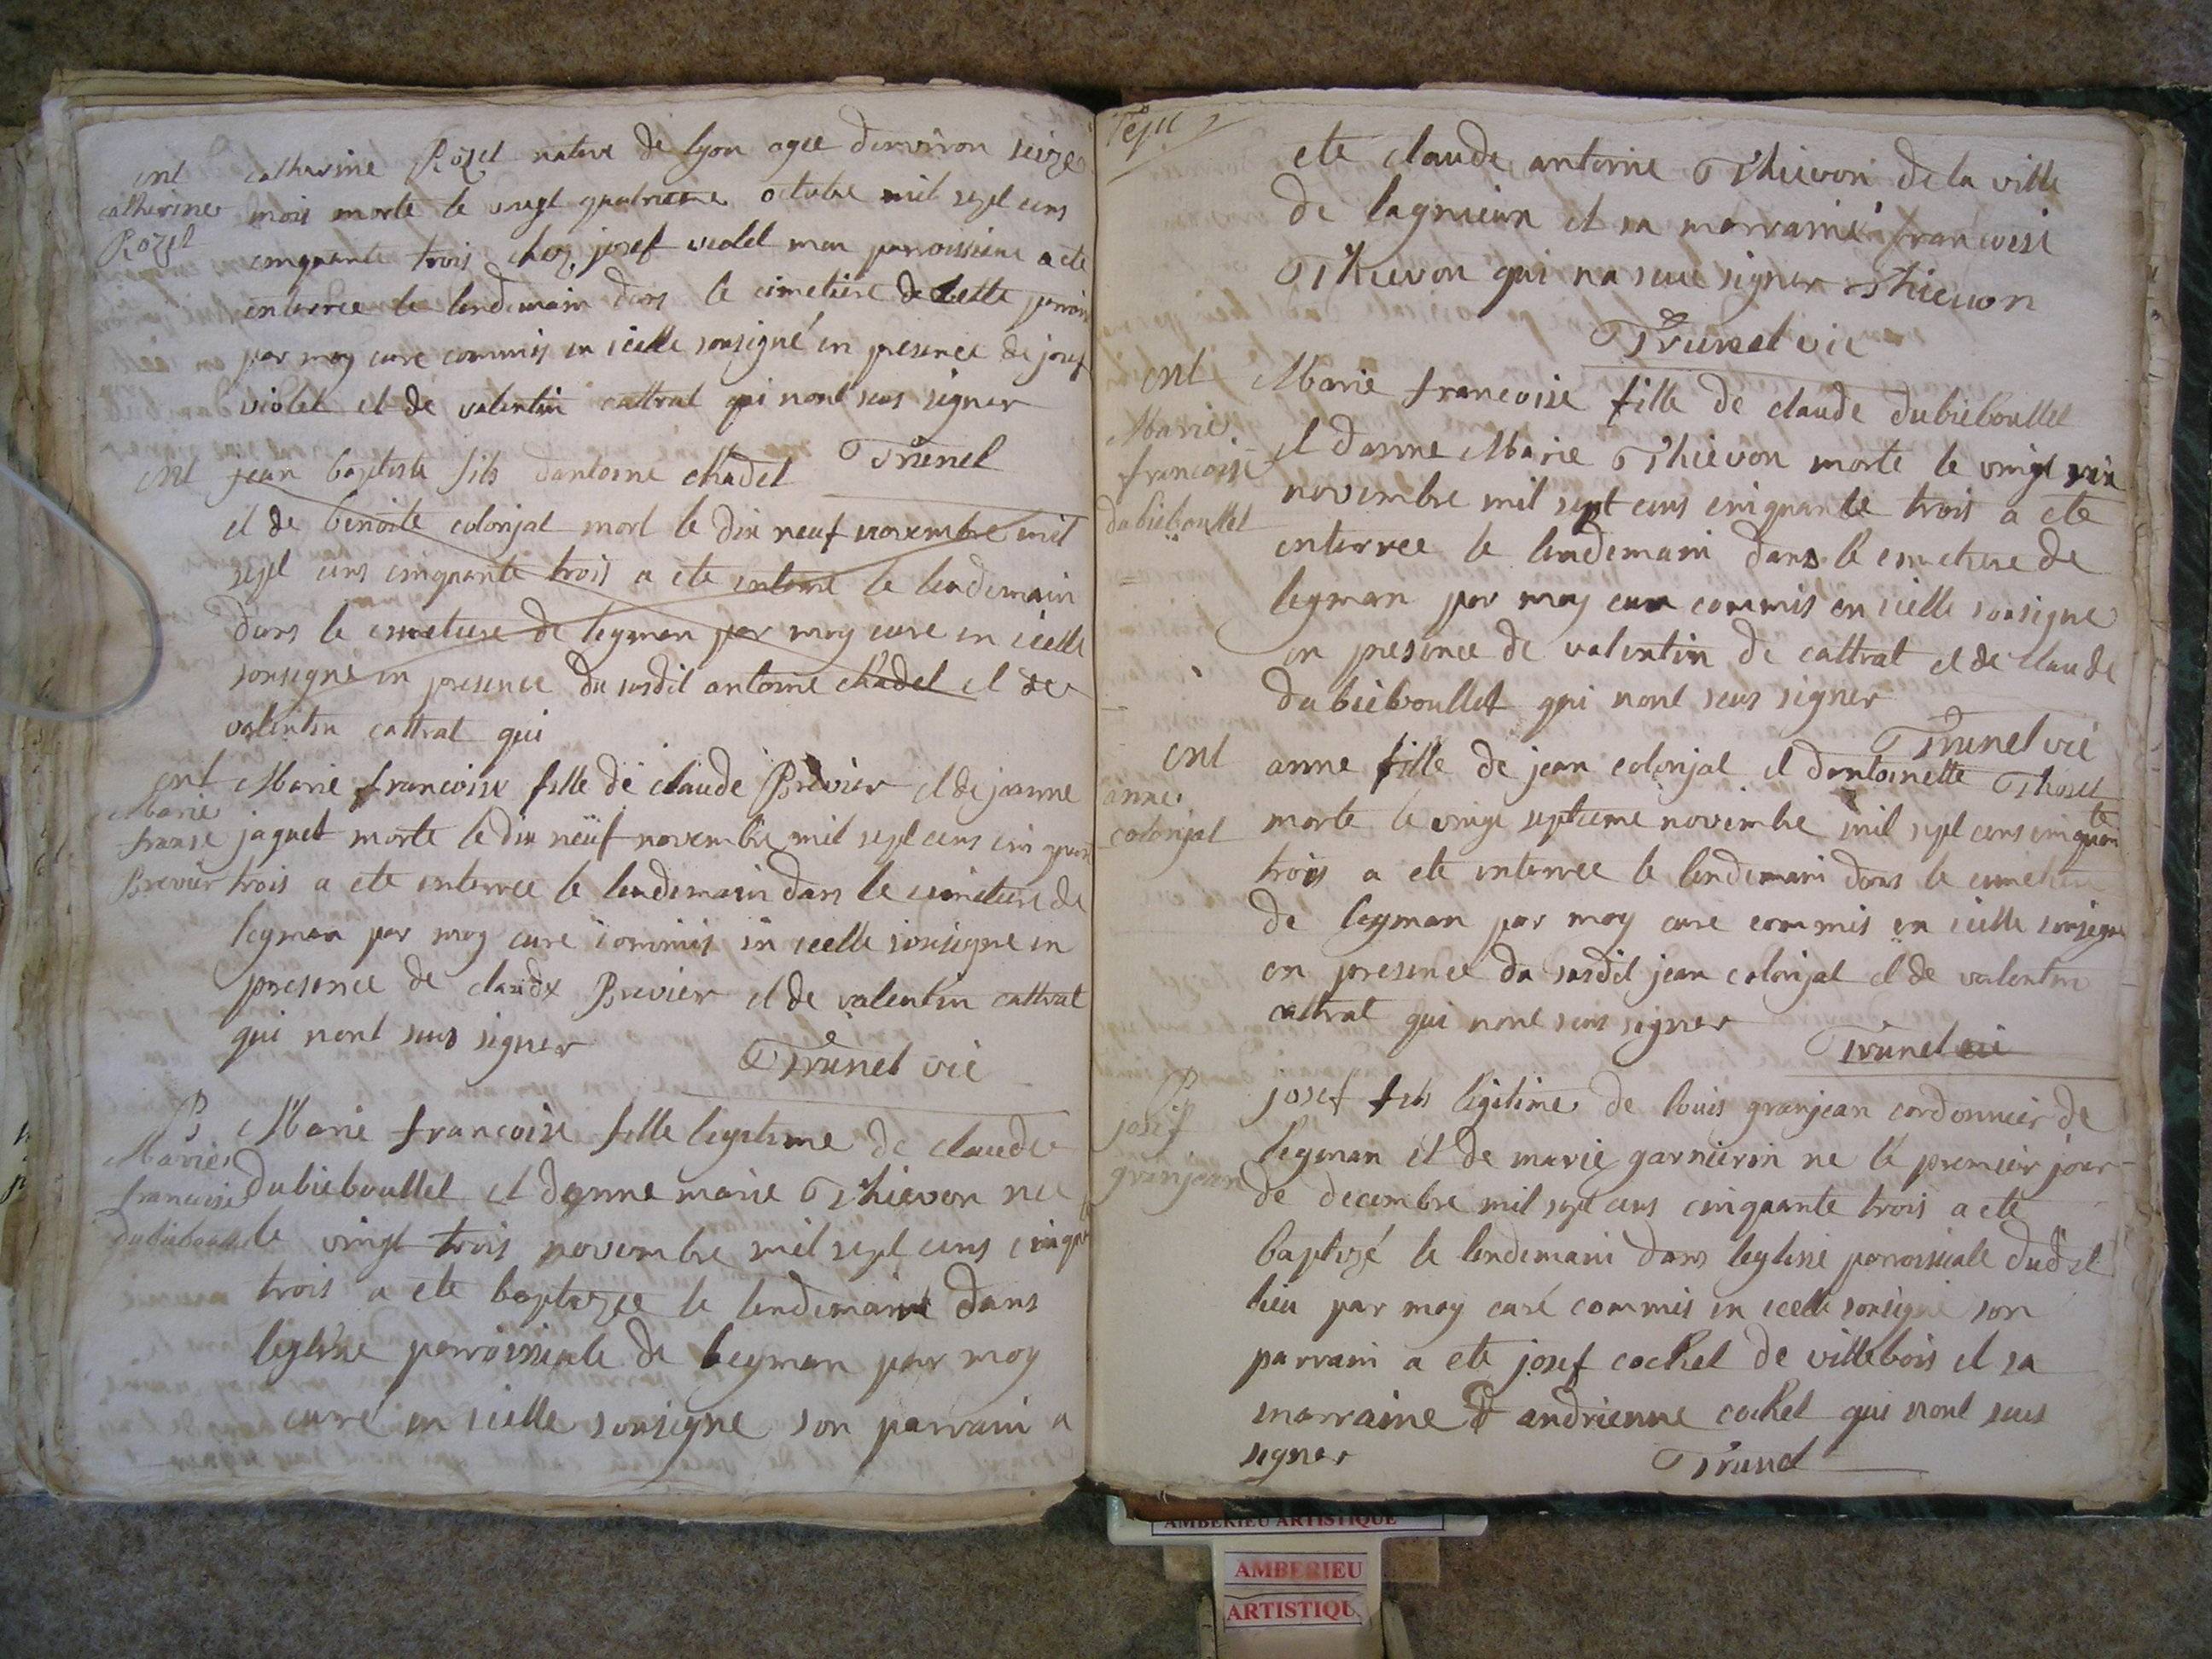 ent
catherine
Rozet
catherine Rozet native de lyon agee denviron seize
mois morte le vingt quatrieme octobre mil sept cens
cinquante trois chez josef violet mon paroissiens a ete
enterree le lendemain dans le cimetiere de cette paroi
par moy cure commis en icelle sousigné en presence de josef
violet et de valentin cattrat qui nont seus signer
Trunel
ent
jean baptiste fils dantoine chadel
et de benoite colonjat mort le dix neuf novembre mil
sept cens cinquante trois a ete enterré le lendemain
dans le cimetiere de leyman par moy cure en icelle
sousigne en presence du susdit antoine chadel et de
valentin cattrat qui
ent
Marie
franse
Brevier
Marie francoise fille de claude Brevier et de jeanne
jaquet morte le dix neuf novembre mil sept cens cinquan
trois a ete enterree le lendemain dans le cimetiere de
leyman par moy cure commis en icelle sousigne en
presence de claude Brevier et de valentin cattrat
qui nont seus signer
Trunel vic
B
Marie
francoise
dubieboullet
Marie francoise fille legitime de claude
dubieboullet et danne marie Thievon nee
le vingt trois novembre mil sept cens cinqu
trois a ete baptizee le lendemain dans
leglise parroissiale de leyman par moy
curé en icelle sousigne son parrain a
ete claude antoine Thievon de la ville
de lagnieux et sa marraine francoise
Thievon qui na seue signer Thievon
Trunel vic
ent
Marie
francoise
dubieboullet
Marie francoise fille de claude dubieboullet
et danne Marie Thievon morte le vingt six
novembre mil sept cens cinquante trois a ete
enterree le lendemain dans le cimetiere de
leyman par moy cure commis en icelle sousigne
en presence de valentin de cattrat et de claude
dubieboullet qui nont seus signer
Trunel vic
ent
anne
colonjat
anne fille de jean colonjat et dantoinette Thoset
morte le vingt septieme novembre mil sept cens cinquante
trois a ete enterree le lendemain dans le cimetiere
de leyman par moy curé commis en icelle sousigne
en presence du susdit jean colonjat et de valentin
cattrat qui nont seus signer
Trunel vic
B
josef
granjean
josef fils legitime de louis granjean cordonnier de
leyman et de marie garnieron ne le premier jour
de decembre mil sept cens cinquante trois a ete
baptizé le lendemain dans leglise parroissiale dudit
lieu par moy curé commis en icelle sousigné son
parrain a ete josef cochet de villebois et sa
marraine andrienne cochet qui nont seus
signer
Trunel
AMBERIEU ARTISTIQUE
AMBERIEU
ARTISTIQU